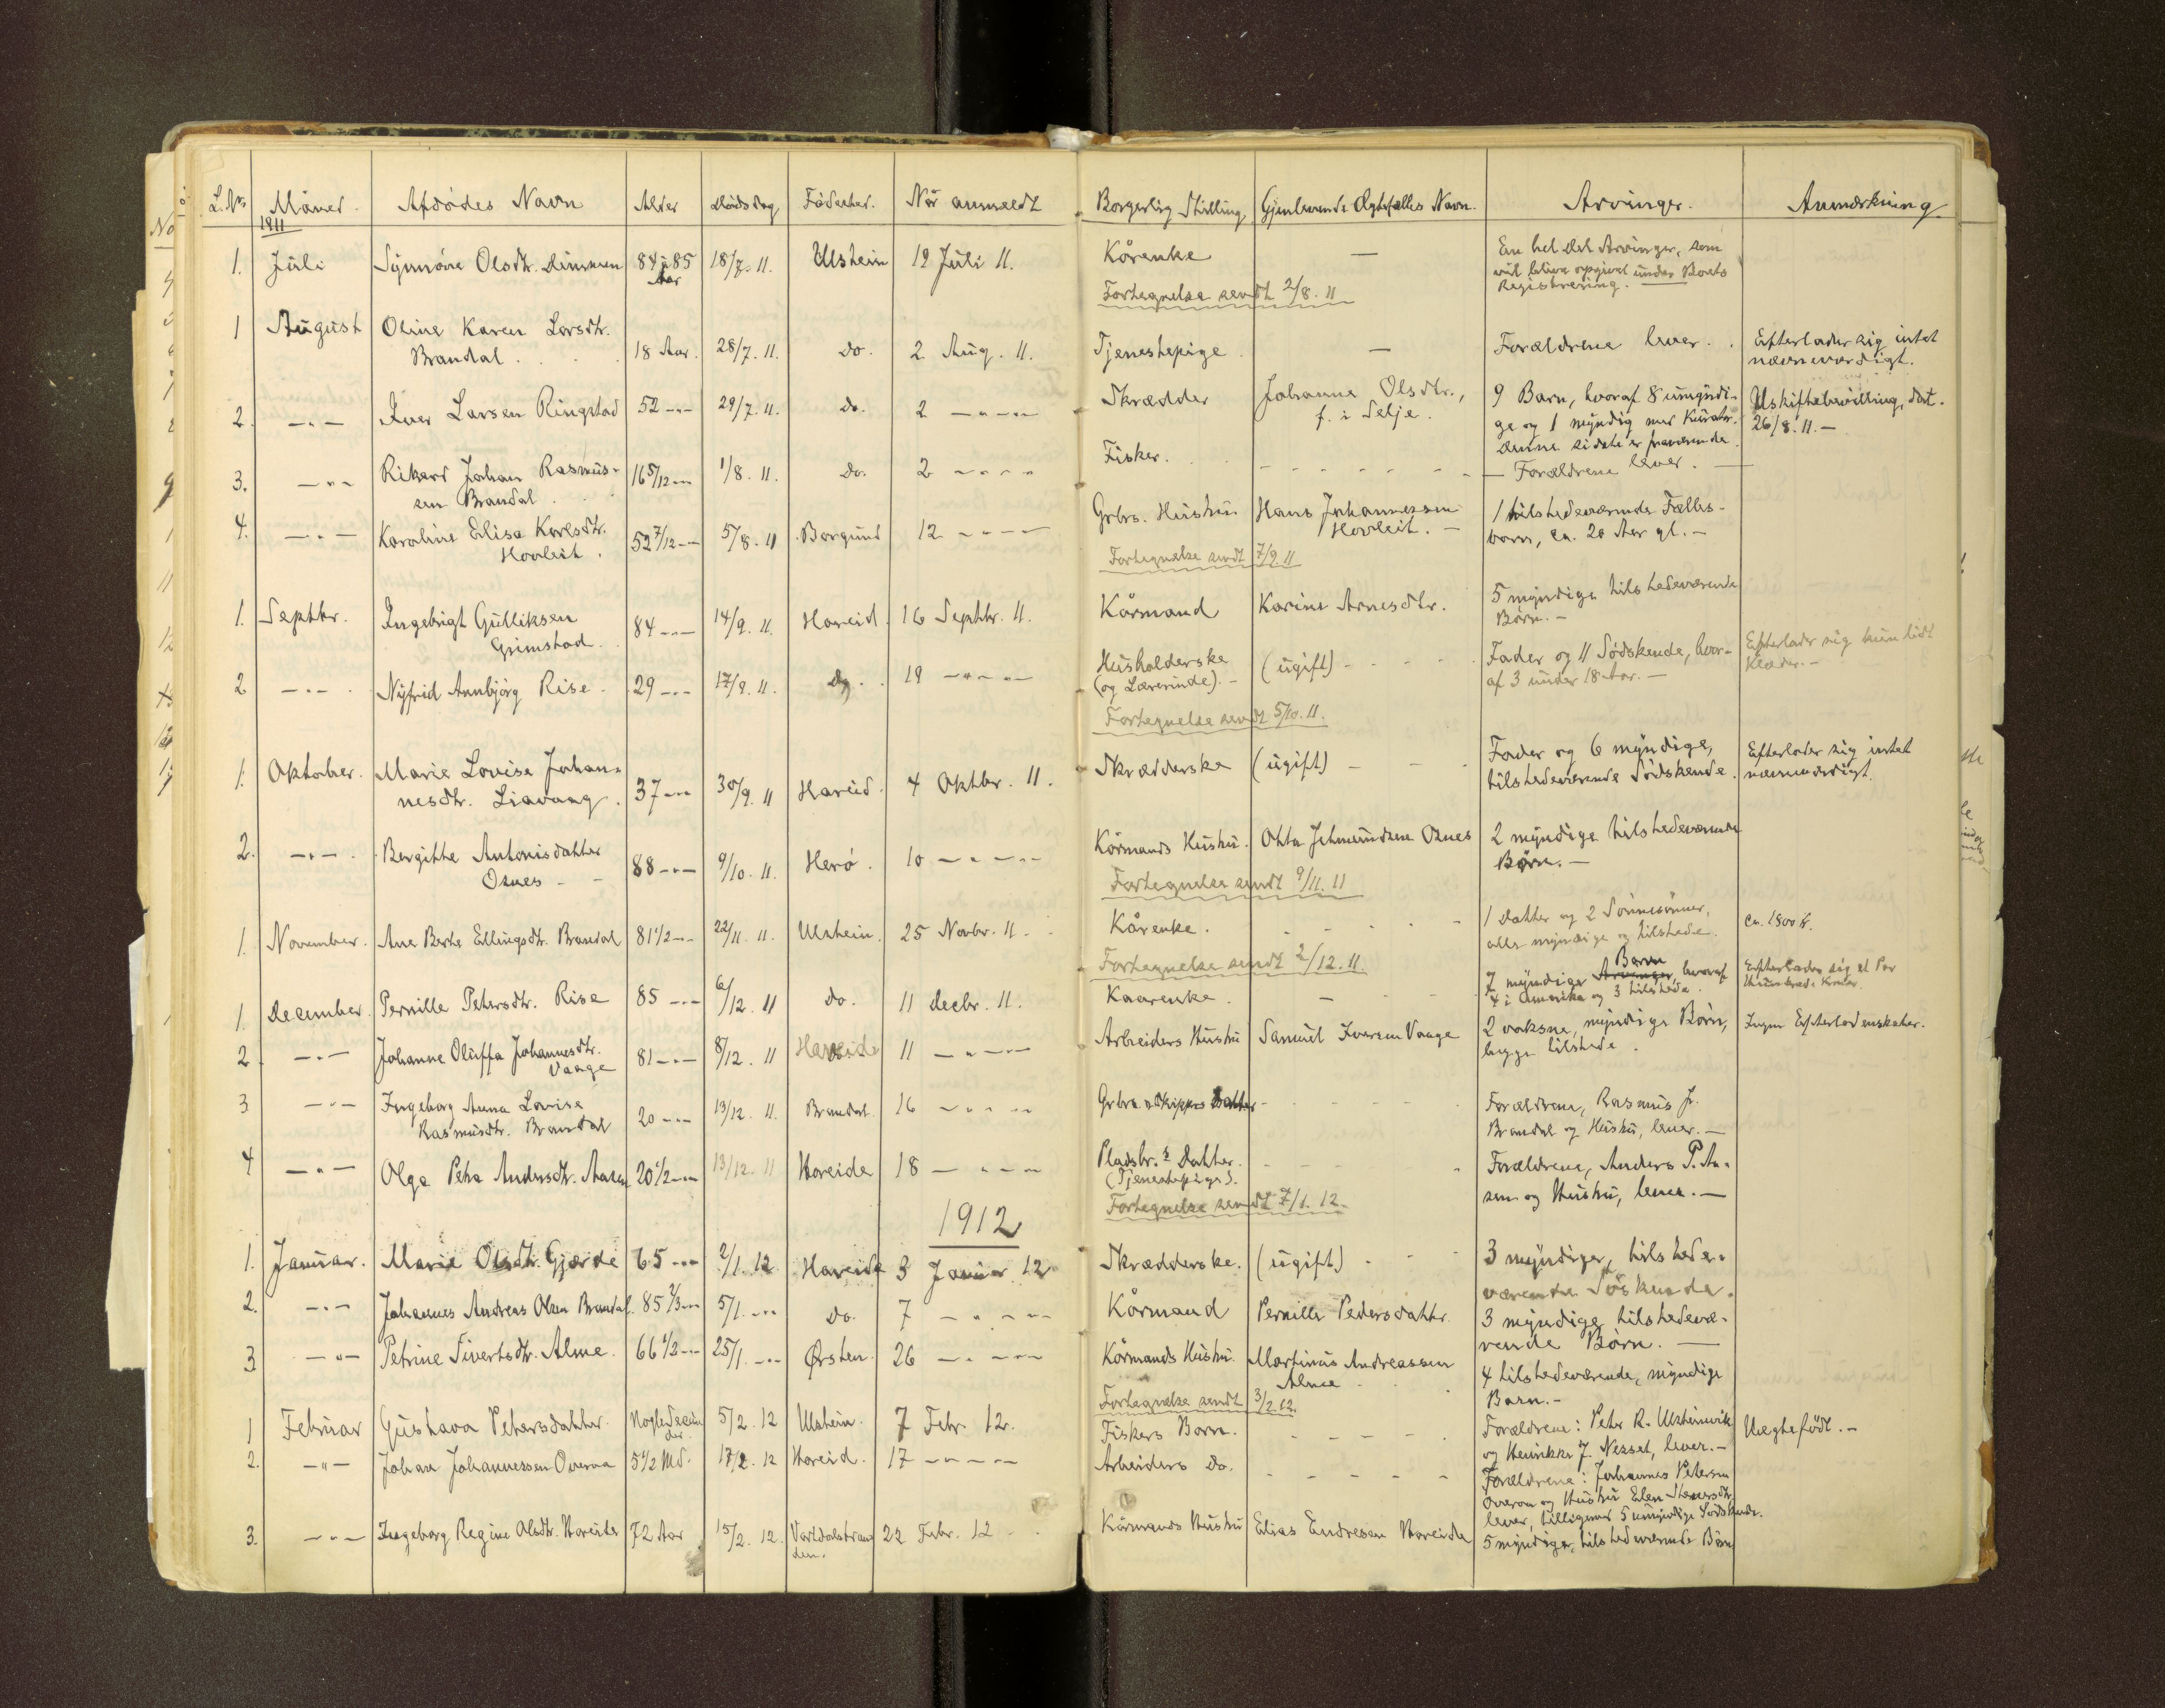 L.Nr. Måned. Afdødes Navn Alder Dødsdag Fødested. Når anmeldt Borgerlig Stilling Gjenlevende Ægtefælles Navn. Arvinger. Anmærkning.
1911
1. Juli Synnøve Olsdtr. Dimmen 84 à 85 18/7. 11. Ulstein 19 Juli 11. Kårenke — En hel Del Arvinger, som
Aar vil blive opgivet under Boets
Fortegnelse sendt 2/8. 11 Registrering.
1 August Oline Karen Larsdtr.
Brandal. 18 Aar. 28/7. 11. do. 2 Aug. 11. Tjenestepige — Forældrene lever. Efterlader sig intet
nævneværdigt.
2. —"— Iver Larsen Ringstad 52 —"— 29/7. 11. do. 2 —"—"— Skrædder Johanne Olsdtr., 9 Barn, hvoraf 8 umyndi- Uskiftebevilling, dat.
f. i Selje. ge og 1 myndig med Kurator. 26/8. 11. —
denne sidste er fraværende.
3. —"— Rikard Johan Rasmus- 16 5/12 —"— 1/8. 11. do. 2 —"—"— Fisker. — Forældrene lever. —
sen Brandal
4. —"— Karoline Elisa Karlsdtr. 52 7/12 —"— 5/8. 11 Borgund 12 —"—"— Grbrs. Hustru Hans Johannessen 1 tilstedeværende Fælles-
Hovleit. Hovleit. — barn, ca. 20 Aar gl. —
Fortegnelse sendt 7/9 11
1. Septbr. Ingebrigt Gulliksen 84 —"— 14/9. 11. Hareid 16 Septbr. 11. Kårmand Karine Arnesdtr. 5 myndige tilstedeværende
Grimstad. Børn. —
2 —"— Nyfrid Annbjørg Rise 29 —"— 17/9. 11. do. 19 —"—"— Husholderske (ugift) Fader og 11 Sødskende, hvor- Efterlader sig kun lidt
(og Lærerinde). — af 3 under 18 Aar. — Klæder. —
Fortegnelse sendt 5/10. 11.
1. Oktober. Marie Lovise Johan- 37 —"— 30/9. 11 Hareid. 4 Oktbr. 11. Skrædderske (ugift) Fader og 6 myndige, Efterlader sig intet
nesdtr. Liavaag. tilstedeværende Sødskende. nævneværdigt.
2. —"— Bergitte Antonisdatter 88 —"— 9/10. 11. Herø. 10 —"—"— Kårmands Hustru. Otto Osnes 2 myndige tilstedeværende
Osnes Børn. —
Fortegnelse sendt 9/11. 11
1. November. Ane Berte Ellingsdtr. Brandal 81 1/2 —"— 22/11. 11. Ulstein. 25 Novbr. 11. Kårenke. 1 Datter og 2 Sønnesønner, ca. 1800 kr.
alle myndige og tilstede.
Fortegnelse sendt 2/12. 11. Barn
1. December. Pernille Petersdtr. Rise 85 —"— 6/12 11 do. 11 Decbr. 11. Kaarenke. — 7 myndige Arvinger, hvoraf Efterlader sig et Par
4 i Amerika og 3 tilstede. Hundrede Kroner.
2. —"— Johanne Oluffa Johannesdtr. 81 —"— 8/12. 11 Hareide 11 —"—"— Arbeiders Hustru Samuel Iversen Vaage 2 voksne, myndige Børn, Ingen Efterladenskaber.
Vaage begge tilstede.
3 —"— Ingeborg Anna Lovise 20 —"— 13/12. 11. Brandal. 16 —"—"— Grbr. & Skippers Datter Forældrene, Rasmus J.
Rasmusdtr. Brandal Brandal og Hustru, lever. —
4 —"— Olga Petra Andersdtr. Aasen 20 1/2 —"— 13/12. 11 Hareide 18 —"—"— Pladsbr.s Datter. Forældrene, Anders P. Aa-
(Tjenestepige). sen og Hustru, lever. —
Fortegnelse sendt 7/1. 12.
1912
1. Januar. Marie Olsdtr. Gjærde 65 —"— 2/1. 12 Hareide 3 Januar 12 Skrædderske. (ugift) 3 myndige, tilstede-
værende Søskende.
2. —"— Johannes Andreas Olsen Brandal. 85 2/3 —"— 5/1. —"— do. 7 —"—"— Kårmand Pernille Pedersdatter 3 myndige tilstedevæ-
rende Børn. —
3. —"— Petrine Sivertsdtr. Alme. 66 1/2 —"— 25/1. —"— Ørsten. 26 —"—"— Kårmands Hustru. Martinus Andreassen 4 tilstedeværende, myndige
Alme Barn. —
Fortegnelse sendt 3/2. 12.
1 Februar Gustava Petersdatter. Nogle 5/2. 12 Ulstein. 7 Febr. 12. Fiskers Barn. Forældrene: Peter R. Ulsteinvik Uægtefødt. —
og Henrikke J. Nesset, lever. —
2. —"— Johan Johannessen Overaa 5 1/2 Md. 17/2. 12 Hareid. 17 —"—"— Arbeiders do. Forældrene: Johannes Petersen
Overaa og Hustru Elen
lever, tilligemed 5 umyndige Sødskende.
3. —"— Ingeborg Regine Olsdtr. Hareide 72 Aar 15/2. 12. Vartdalstran- 22 Febr. 12 Kårmands Hustru Elias Endresen Hareide 5 myndige, tilstedeværende Børn
den.